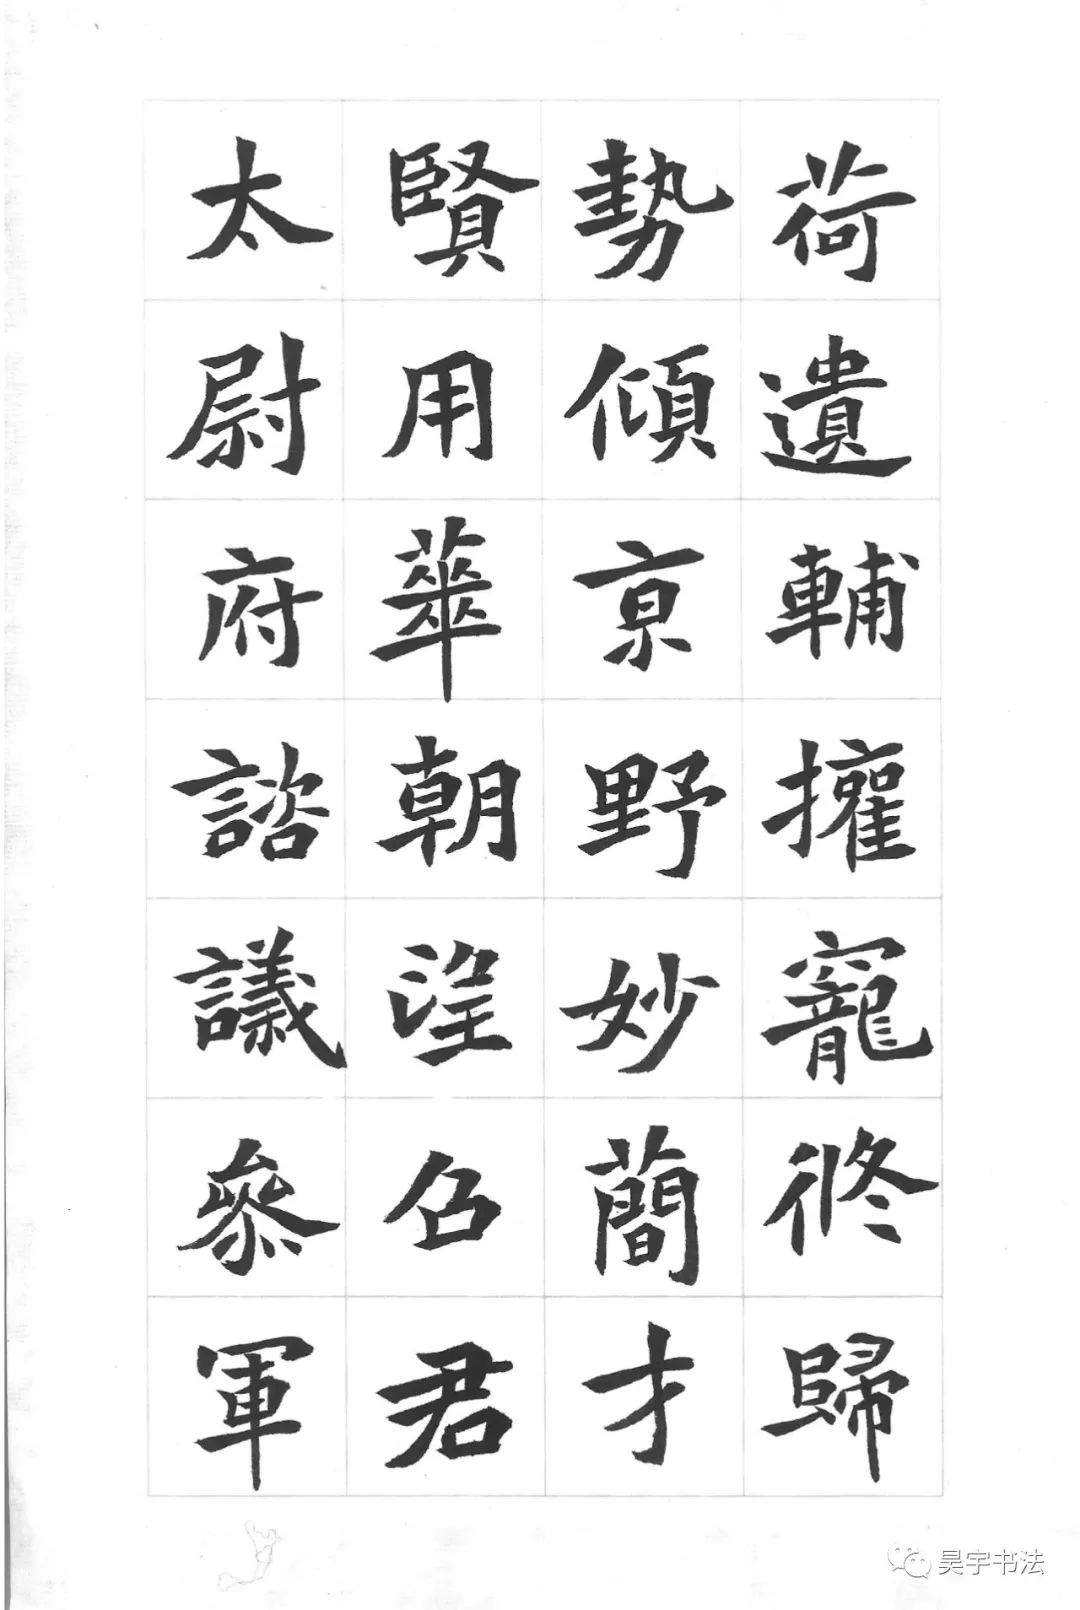 荷遺輔擁寵終歸
勢傾京野妙簡才
賢用華朝望召君
太尉府諮議參軍
昊宇书法